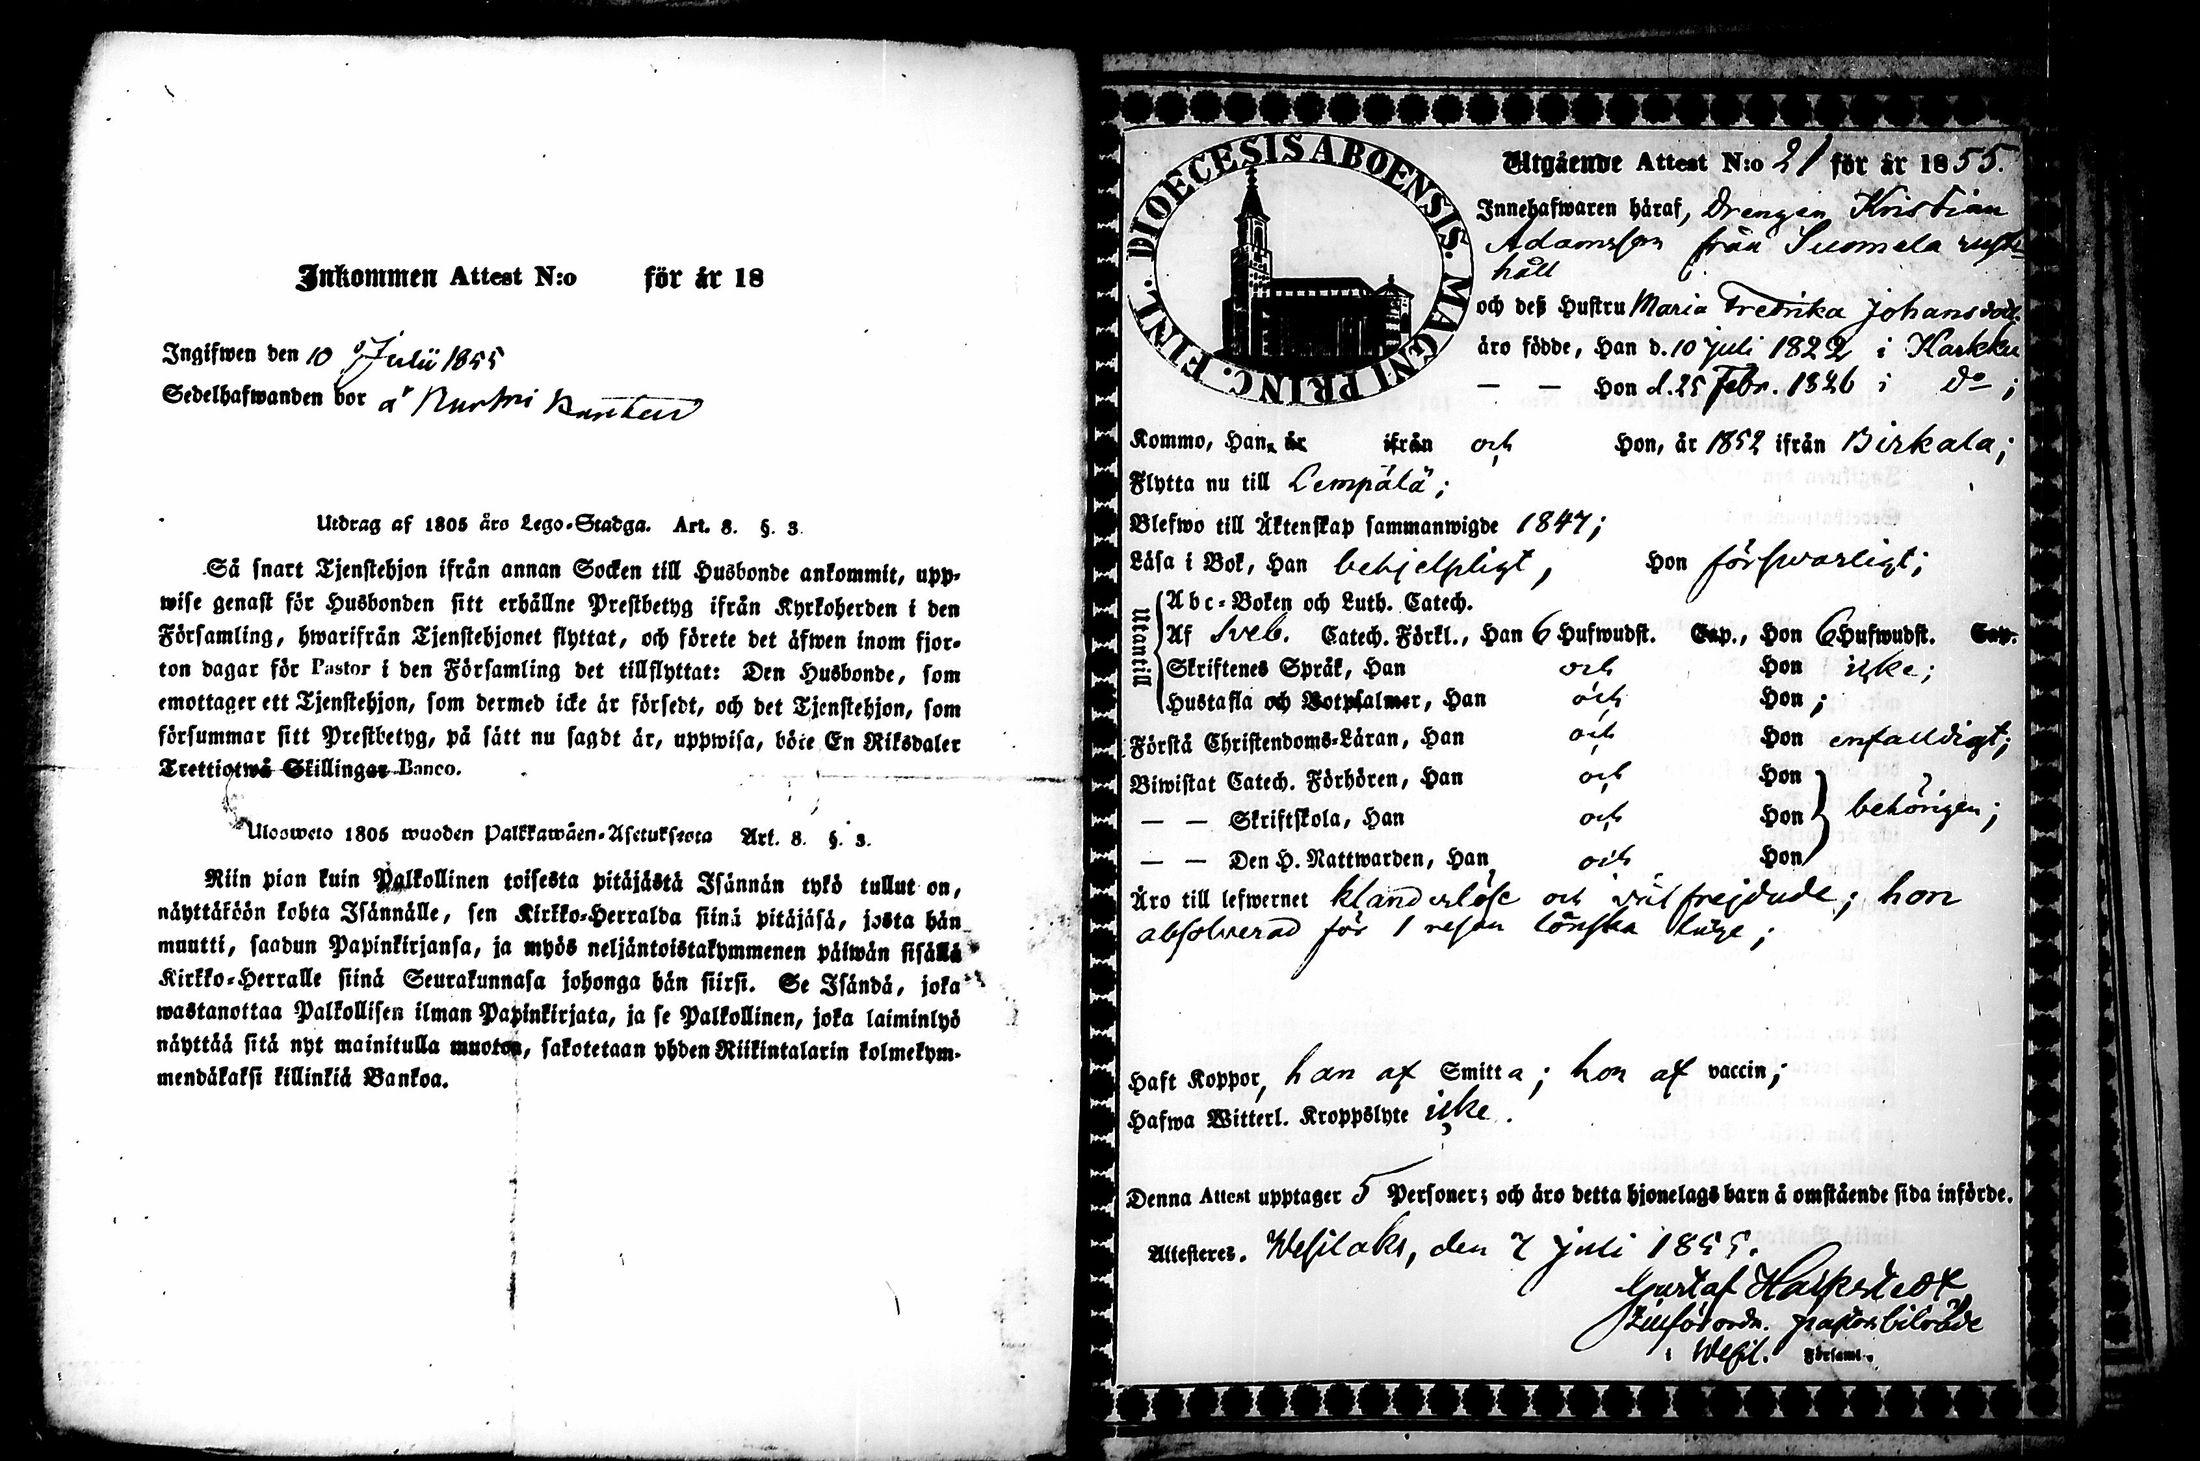 Inkommen Attest N:o för år 18
Ingifwen den 10 Julii 1855
Sedelhafwanden bor å Nurmi
Utdrag af 1805 års Lego-Stadga. Art. 8. §. 3.
Så snart Tjenstehjon ifrån annan Socken till Husbonde ankommit, upp-
wise genast för Husbonden sitt erhållne Prestbetyg ifrån Kyrkoherden i den
Församling, hwarifrån Tjenstehjonet flyttat, och förete det äfwen inom fjor-
ton dagar för Pastor i den Församling det tillflyttat: Den Husbonde, som
emottager ett Tjenstehjon, som dermed icke är försedt, och det Tjenstehjon, som
försummar sitt Prestbetyg, på sätt nu sagdt är, uppwisa, böte En Riksdaler
Trettiotwå Skillingar Banco.
Ulosweto 1805 wuoden Palkkawäen-Asetuksesta Art. 8. §. 3.
Niin pian kuin Palkollinen toisesta pitäjästä Isännän tykö tullut on,
näyttäköön kohta Isännälle, sen Kirkko-Herralda siinä pitäjäsä, josta hän
muutti, saadun Papinkirjansa, ja myös neljäntoistakymmenen päiwän sisällä
Kirkko-Herralle siinä Seurakunnasa johonga hän siirsi. Se Isändä, joka
wastanottaa Palkollisen ilman Papinkirjata, ja se Palkollinen, joka laiminlyö
näyttää sitä nyt mainitulla muoton, sakotetaan yhden Riikintalarin kolmekym-
mendäkaksi killinkiä Bankoa.
DIOECESIS ABOENSIS. MAGNI PRINC. FINL.
Utgående Attest N:o 21 för år 1855.
Innehafwaren häraf, Drengen Kristian
Adamsson från Suomela rust-
håll
och deß Hustru Maria Fredrika Johansdott.
äro födde, Han d. 10 juli 1822 i Karkku
— — Hon d. 25 Febr. 1826 i do;
Kommo, Han, år ifrån och Hon, år 1852 ifrån Birkala;
Flytta nu till Lempälä;
Blefwo till Äktenskap sammanwigde 1847;
Läsa i Bok, Han behjelpligt, Hon förswarligt;
Utantill
Abc-Boken och Luth. Catech.
Af Sveb. Catech. Förkl., Han 6 Hufwudst. Cap., Hon 6 Hufwudst. Cap.
Skriftenes Språk, Han och Hon icke;
Hustafla och Botpsalmer, Han och Hon;
Förstå Christendoms-Läran, Han och Hon enfaldigt;
Biwistat Catech. Förhören, Han och Hon
— — Skriftskola, Han och Hon behörigen;
— — Den H. Nattwarden, Han och Hon
Äro till lefwernet klanderlöse och välfrejdade; hon
absolverad för 1 resan lönska läge;
Haft Koppor, han af Smitta; hon af vaccin;
Hafwa Witterl. Kroppslyte icke.
Denna Attest upptager 5 Personer; och äro detta hjonelags barn å omstående sida införde.
Attesteres. Wesilaks, den 7 juli 1855.
Gustaf
pastorsbiträde
i Wesil. Församl.